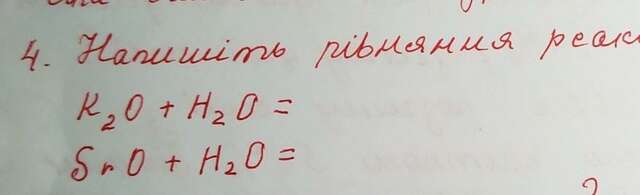 4. Напишіть рівняння реак
K₂O + H₂O =
SrO + H₂O =